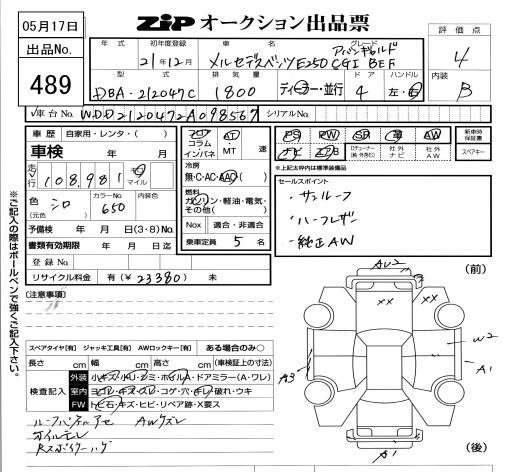 05月17日
出品No.
489
ZIP オークション出品票
評価点
4
内装
B
年式 初年度登録 車名 グレード
21年12月 メルセデスベンツE250 CGI BEF
アバンギャルド
型式 排気量 ドア ハンドル
DBA-212047C 1800 ディーラー・並行 4 左・右
車台No. WDD2120472A098567 シリアルNo.
車歴 自家用・レンタ・( )
車検 年 月
走行 108,981 キロ マイル
色 シロ カラーNo. 650 内装色
(元色)
予備検 年 月(3・8)No.
書類有効期限 年 月 日迄
登録No.
リサイクル料金 有(¥23380) 未
フロア AT
コラム
インパネ MT 速
冷房
無・C・AC・AAC( )
燃料
ガソリン・軽油・電気・
その他( )
Nox 適合・非適合
乗車定員 5 名
PS PW SR 革 AW 新車時保証書
ナビ エアB Dチューナー(純・外含む) 社外ナビ 社外AW スペアキー
*上記太枠内は標準装備品
セールスポイント
・サンルーフ
・ハーフレザー
・純正AW
※ご記入の際はボールペンで強くご記入下さい。
[注意事項]
スペアタイヤ[有] ジャッキ工具[有] AWロックキー[有] ある場合のみ〇
長さ cm 幅 cm 高さ cm (車検証上の寸法)
検査記入
外装 小キズ・小U・シミ・ホイルA・ドアミラー(A・ワレ)
室内 ヨゴレ・キズ・スレ・コゲ・穴・キレ・破れ・ウキ
FW トビ石・キズ・ヒビ・リペア跡・X要ス
AWズレ
(前)
AU2
XX
XX
W2
A1
A3
A1
(後)